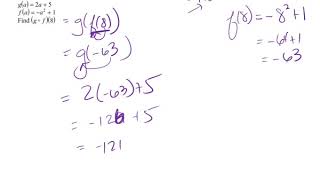 g(a) = 2a + 5
f(a) = -a² + 1
Find (g ∘ f)(8)
= g(f(8))
= g(-63)
= 2(-63)+5
= -126 + 5
= -121
f(8) = -8² + 1
= -64 + 1
= -63